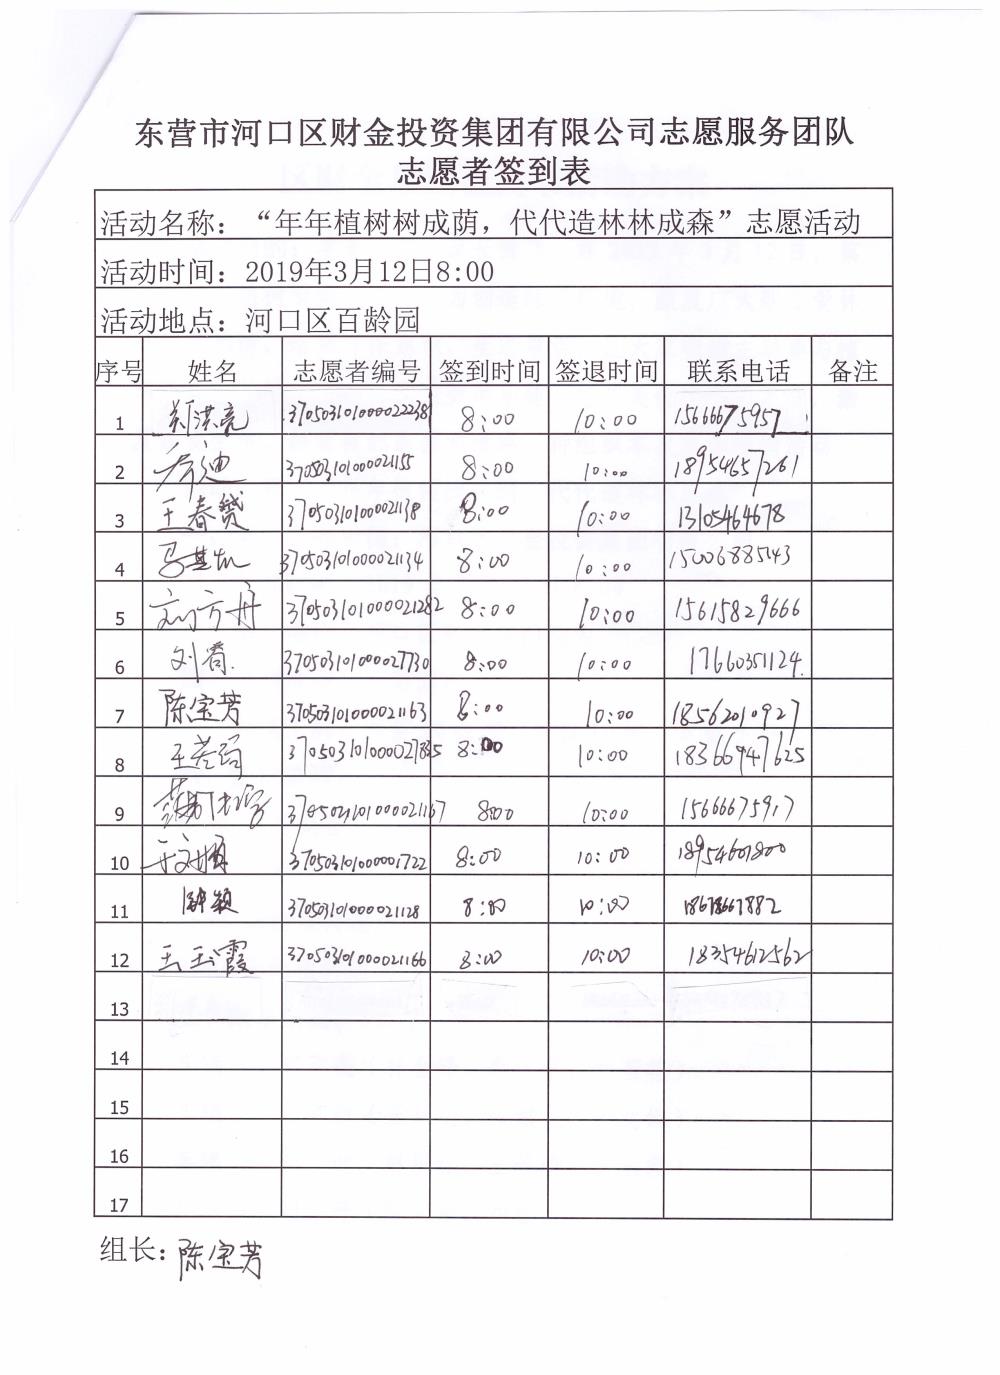 东营市河口区财金投资集团有限公司志愿服务团队
志愿者签到表
活动名称：“年年植树树成荫，代代造林林成森”志愿活动
活动时间：2019年3月12日8:00
活动地点：河口区百龄园
序号 姓名 志愿者编号 签到时间 签退时间 联系电话 备注
1 郑洪亮 8:00 10:00 15666675957
2 3705031010000021155 8:00 10:00 18954657261
3 王春赞 3705031010000021138 8:00 10:00 13105464678
4 马其凯 3705031010000021134 8:00 10:00 15006885143
5 刘方舟 3705031010000021282 8:00 10:00 15615829666
6 刘春 3705031010000027730 8:00 10:00 17660351124
7 陈宝芳 3705031010000021163 8:00 10:00 18562010927
8 8:00 10:00 18366947625
9 8:00 10:00 15666675917
10 8:00 10:00 18954601800
11 3705031010000021128 8:00 10:00 18678667882
12 王玉霞 3705031010000021166 8:00 10:00 18354612562
13
14
15
16
17
组长：陈宝芳